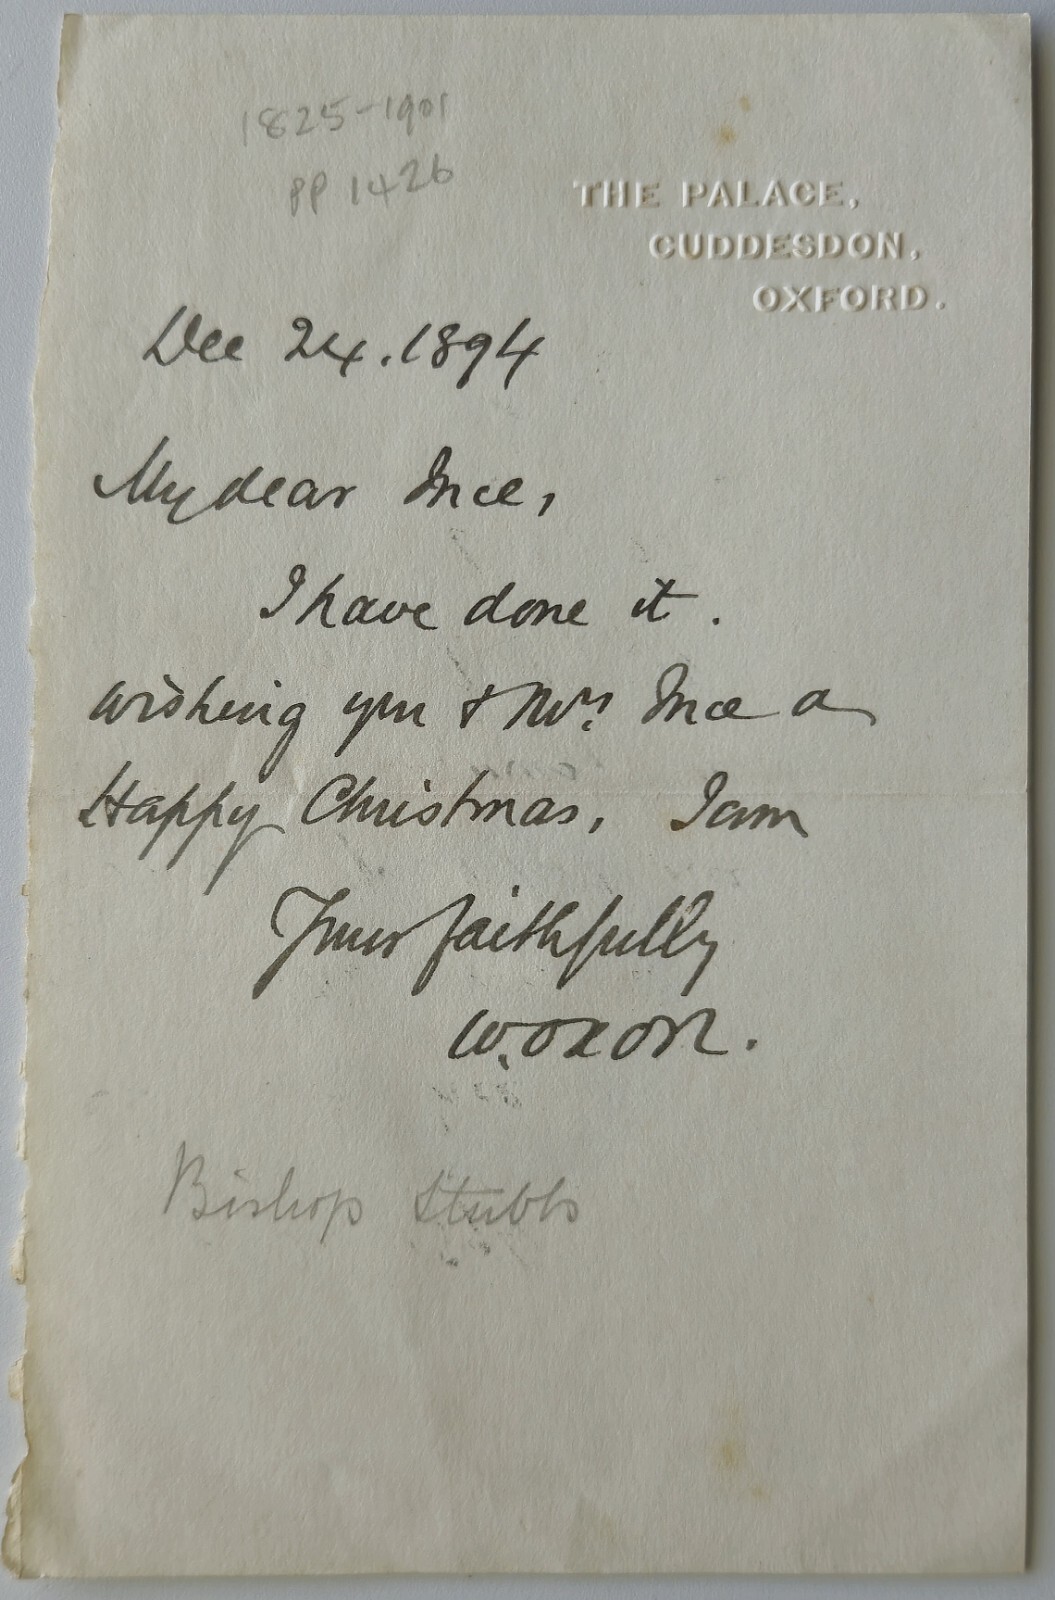 1825-1901
PP 1426
THE PALACE,
CUDDESDON,
OXFORD.
Dec 24. 1894
My dear Ince,
I have done it.
wishing you & Mrs Ince a
Happy Christmas, I am
Yours faithfully
W. OXON.
Bishop Stubbs